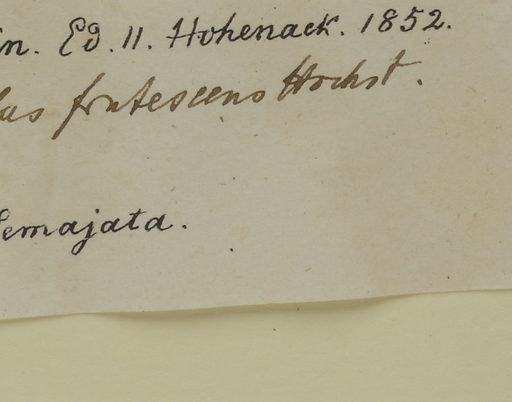 in. Ed. 11. Hohenack. 1852.
las frutescens Hochst.
Semajata.